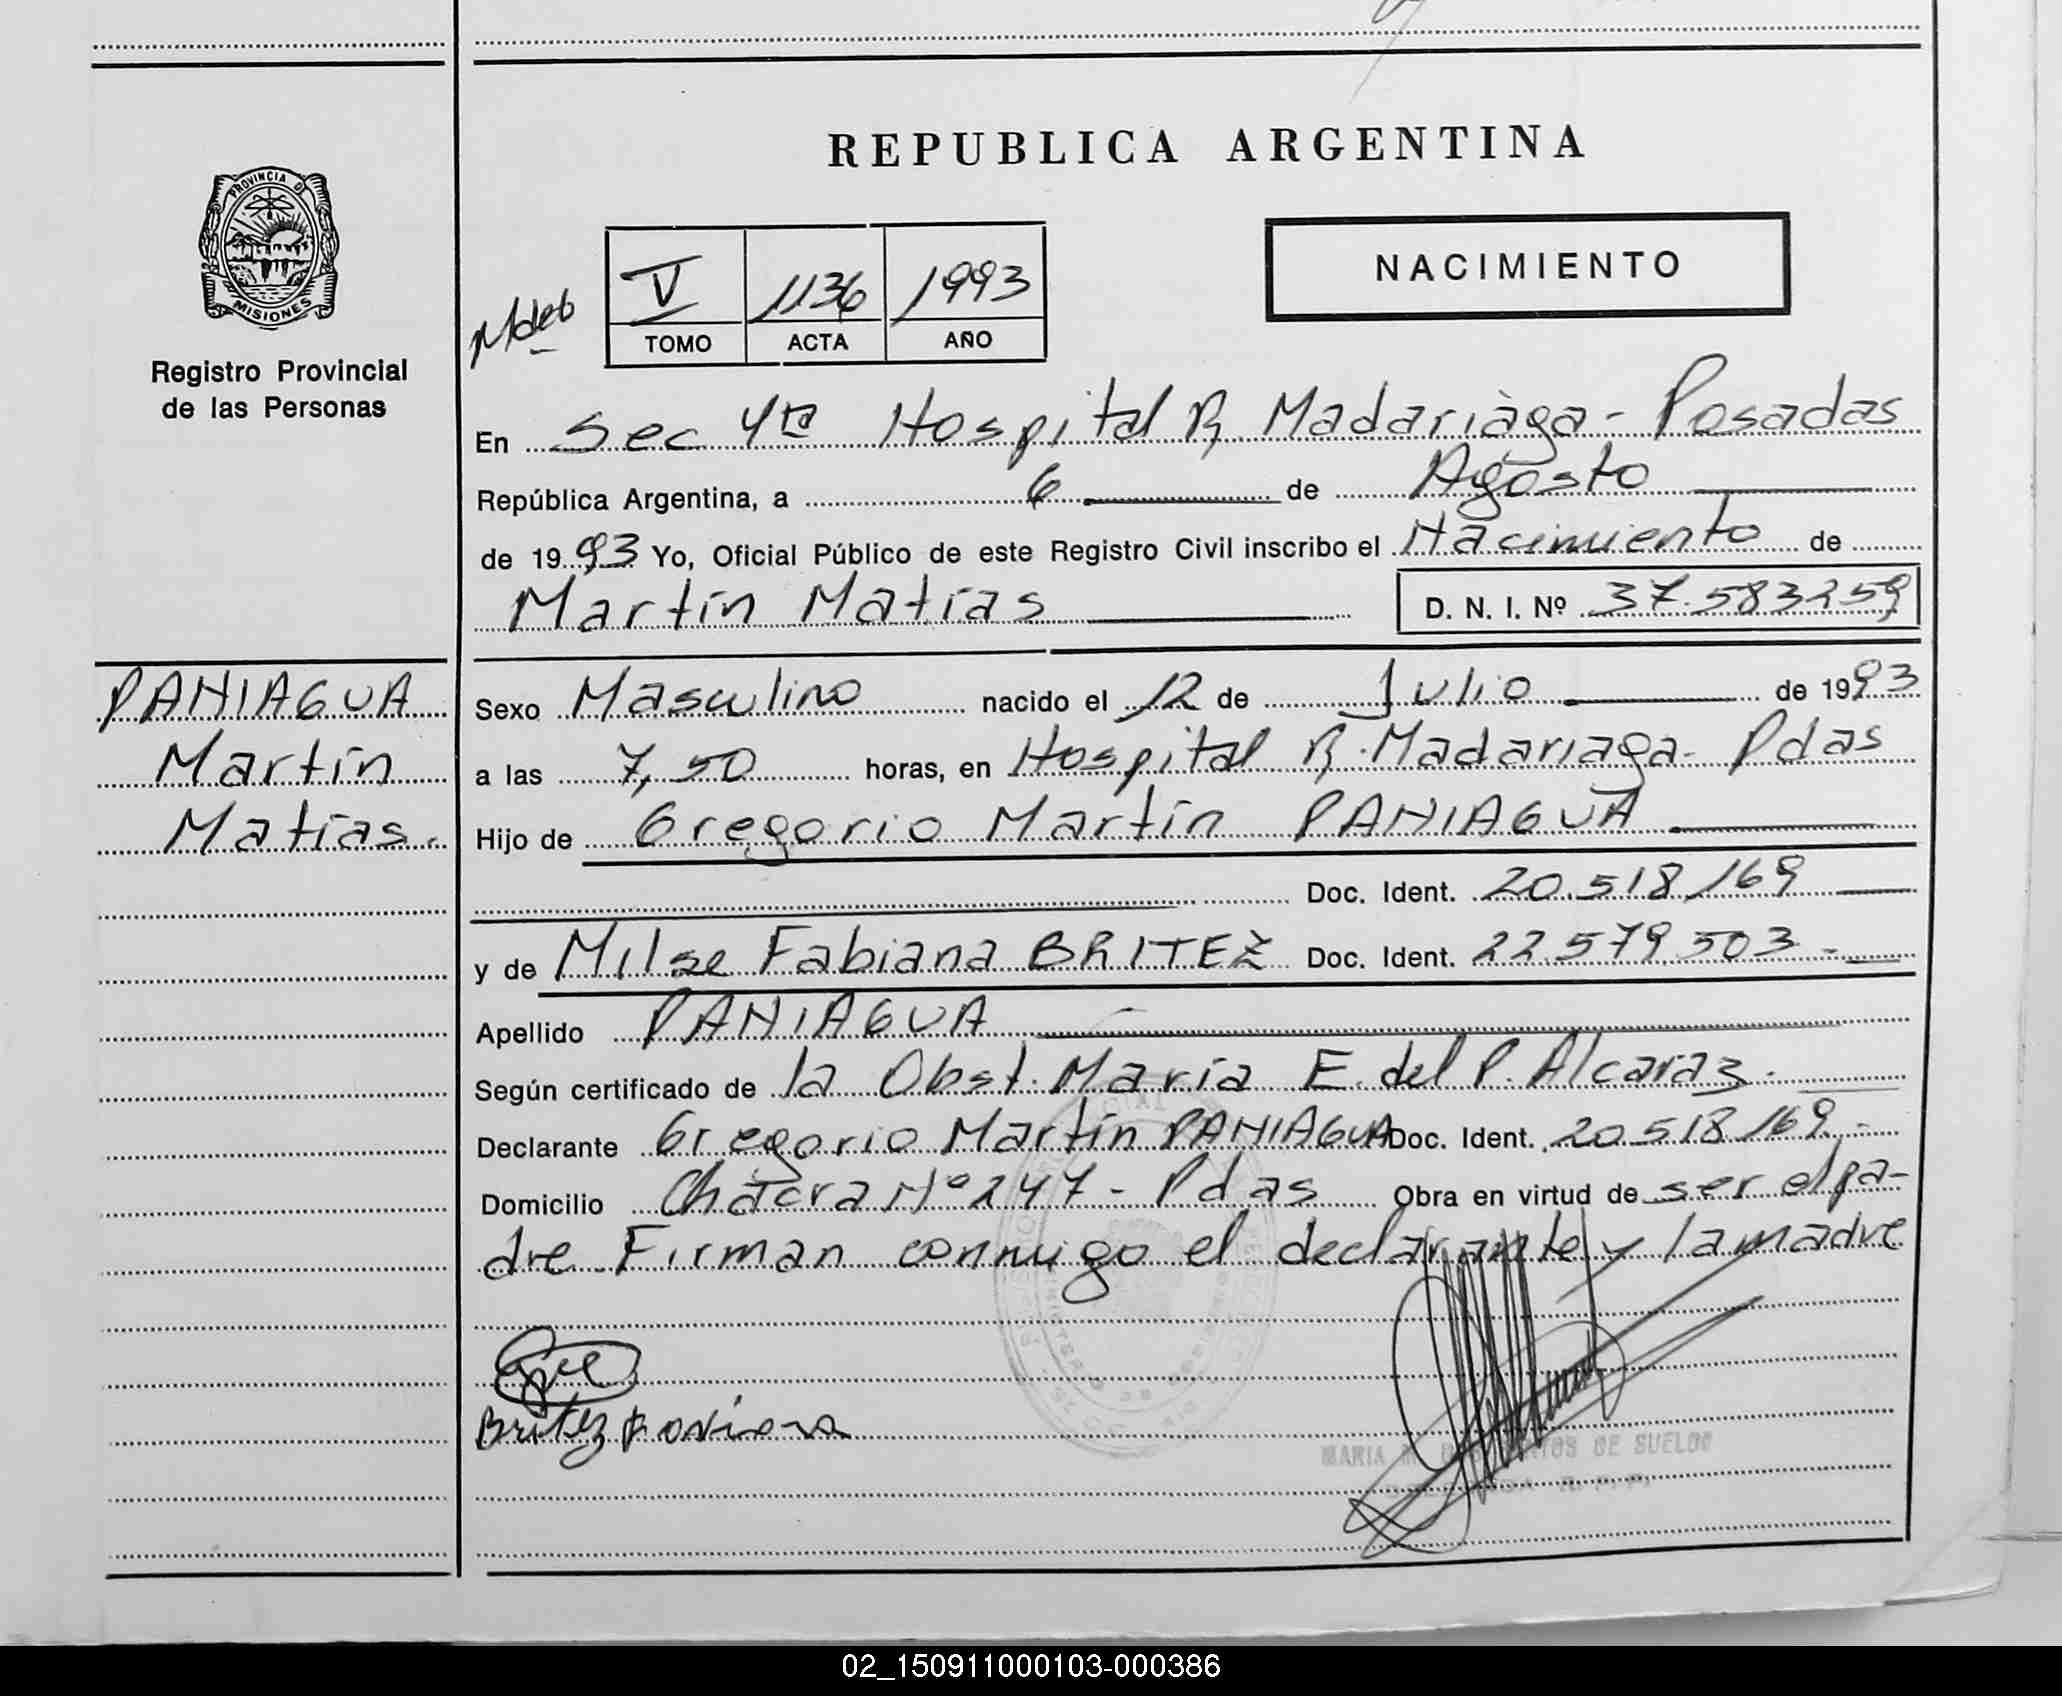 REPUBLICA ARGENTINA
PROVINCIA D
MISIONES
Registro Provincial
de las Personas
V 1136 1993
TOMO ACTA AÑO
NACIMIENTO
En Sec 4ta Hospital R. Madariaga - Posadas
República Argentina, a 6 de Agosto
de 1993 Yo, Oficial Público de este Registro Civil inscribo el Nacimiento de
Martín Matías D. N. I. Nº 37.583259
PANIAGUA
Martín
Matías.
Sexo Masculino nacido el 12 de Julio de 1993
a las 7,50 horas, en Hospital R. Madariaga - Pdas
Hijo de Gregorio Martín PANIAGUA
Doc. Ident. 20.518169
y de Milse Fabiana BRITEZ Doc. Ident. 22.579.503.-
Apellido PANIAGUA
Según certificado de la Obst. María E. del P. Alcaraz.
Declarante Gregorio Martín PANIAGUA Doc. Ident. 20518169.-
Domicilio Chacra Nº 247 - Pdas Obra en virtud de ser el pa-
dre. Firman conmigo el declarante y la madre
Britez
MARIA DE SUELDO
02_150911000103-000386